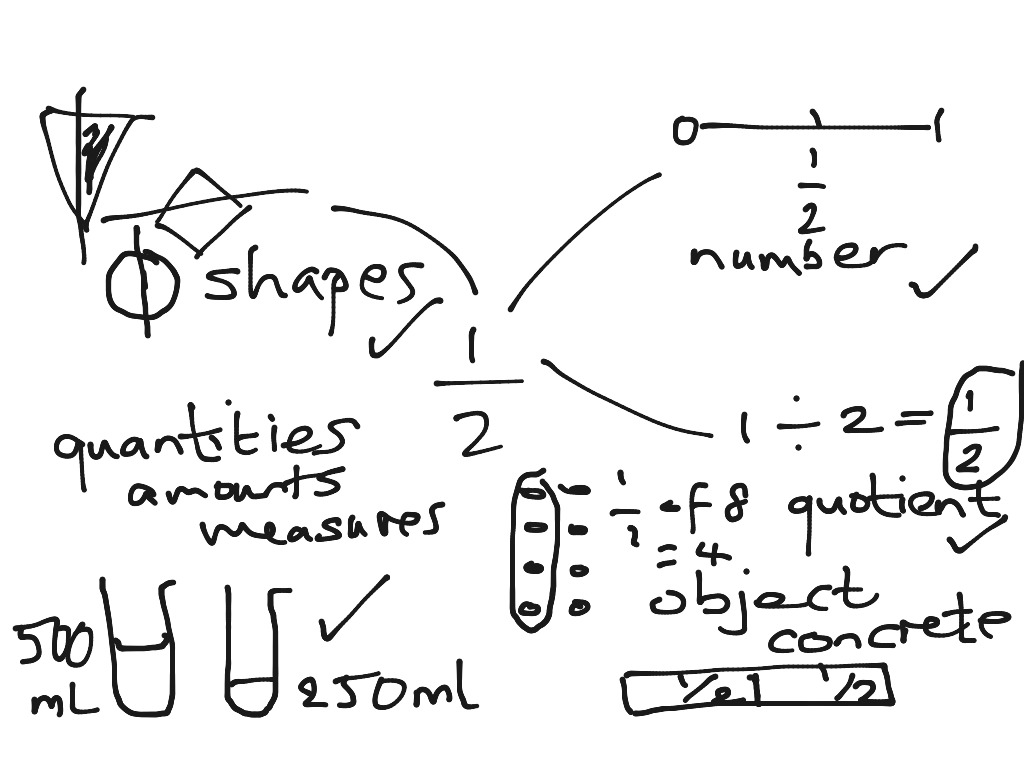 0 1
1/2
number
shapes
1/2
1 ÷ 2 = 1/2
quotient
quantities
amounts
measures
1/2 of 8
= 4
object
concrete
500
mL
250ml
1/2 1/2